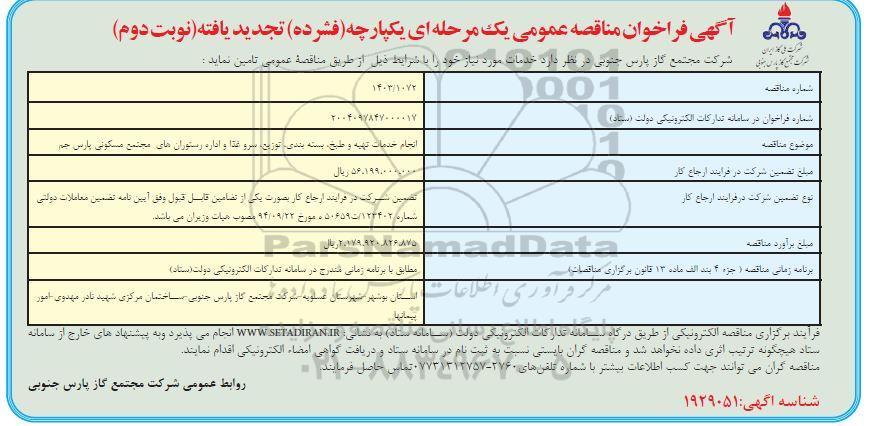 آگهی فراخوان مناقصه عمومی یک مرحله ای یکپارچه(فشرده) تجدید یافته(نوبت دوم)
شرکت ملی گاز ایران
شرکت مجتمع گاز پارس جنوبی
شرکت مجتمع گاز پارس جنوبی در نظر دارد خدمات مورد نیاز خود را با شرایط ذیل از طریق مناقصۀ عمومی تامین نماید :
شماره مناقصه ۱۴۰۳/۱۰۷۲
شماره فراخوان در سامانه تدارکات الکترونیکی دولت (ستاد) ۲۰۰۴۰۹۷۸۴۷۰۰۰۰۱۷
موضوع مناقصه انجام خدمات تهیه و طبخ، بسته بندی، توزیع، سرو غذا و اداره رستوران های مجتمع مسکونی پارس جم
مبلغ تضمین شرکت در فرایند ارجاع کار ۵۶،۱۹۹،۰۰۰،۰۰۰ ریال
نوع تضمین شرکت درفرایند ارجاع کار تضمین شرکت در فرایند ارجاع کار بصورت یکی از تضامین قابل قبول وفق آیین نامه تضمین معاملات دولتی
شماره ۱۲۳۴۰۲/ت۵۰۶۵۹ ه مورخ ۹۴/۰۹/۲۲ مصوب هیات وزیران می باشد.
مبلغ برآورد مناقصه ۲،۱۷۹،۹۲۰،۸۲۶،۸۷۵ریال
برنامه زمانی مناقصه ( جزء ۴ بند الف ماده ۱۳ قانون برگزاری مناقصات) مطابق با برنامه زمانی مُندرج در سامانه تدارکات الکترونیکی دولت(ستاد)
استان بوشهر-شهرستان عسلویه-شرکت مجتمع گاز پارس جنوبی-ساختمان مرکزی شهید نادر مهدوی-امور
پیمانها
فرآیند برگزاری مناقصه الکترونیکی از طریق درگاه سامانه تدارکات الکترونیکی دولت (سامانه ستاد) به نشانی: WWW.SETADIRAN.IR انجام می پذیرد وبه پیشنهاد های خارج از سامانه
ستاد هیچگونه ترتیب اثری داده نخواهد شد و مناقصه گران بایستی نسبت به ثبت نام در سامانه ستاد و دریافت گواهی امضاء الکترونیکی اقدام نمایند.
مناقصه گران می توانند جهت کسب اطلاعات بیشتر با شماره تلفن‌های ۲۷۶۰-۰۷۷۳۱۳۱۲۷۵۷تماس حاصل فرمایند.
روابط عمومی شرکت مجتمع گاز پارس جنوبی
شناسه آگهی:۱۹۲۹۰۵۱
ParsNamadData
مرکز فرآوری اطلاعات پارس نماد داده ها
۰۲۱-۸۸۳۴۹۶۷۰-۵